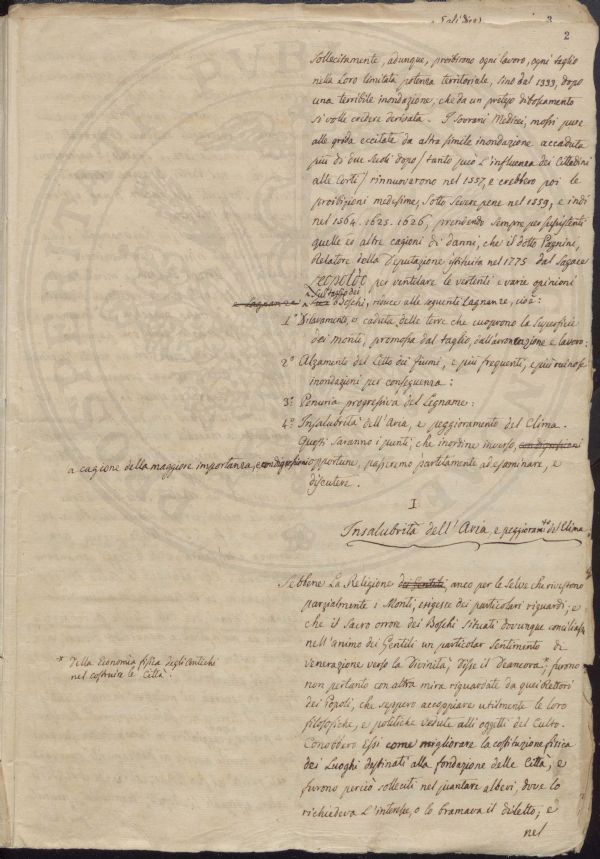 3
2
Sollecitamente, adunque, proibirono ogni lavoro, ogni taglio
nella Loro limitata potenza territoriale, sino dal 1333, dopo
una terribile inondazione, che da un preteso disbosamento
si volle credere derivata. I Sovrani Medicei, mossi pure
alle grida eccitate da altra simile inondazione accaduta
più di due Secoli dopo / tanto può L'influenza dei Cittadini
alle Corti / rinnuoverono nel 1557, e crebbero poi le
proibizioni medesime, sotto severe pene nel 1559, e indi
nel 1564. 1625. 1626, prendendo sempre per sussistenti
quelle ed altre cagioni di danni, che il dotto Pagnini,
Relatore della Deputazione istituita nel 1775 dal Sagace
Leopoldo per ventilare le vertenti e varie opinioni
sul taglio dei
Boschi, riduce alle seguenti Lagnanze, cioè:
1° Dilavamento, e caduta delle terre che cuoprono la Superficie
dei monti, promossa dal taglio, dall'arroncazione e lavoro:
2° Alzamento del Letto dei fiumi, e più frequenti, e più ruinose
inondazioni per conseguenza:
3° Penuria progressiva del Legname:
4° Insalubrità dell'Aria, e peggioramento del Clima.
Questi saranno i punti, che in ordine inverso, con digressioni
a cagione della maggiore importanza, e con digressioni opportune, passeremo partitamente ad esaminare, e
discutere.
I
Insalubrità dell'Aria, e peggioram.to del Clima
Sebbene La Religione dei Gentili, anco per le Selve che rivestono
parzialmente i Monti, esigesse dei particolari riguardi; e
che il Sacro orrore dei Boschi situati dovunque conciliasse
nell'animo dei Gentili un particolar Sentimento di
venerazione verso la Divinità, disse il Deancora*; furono
* Della Economia fisica degli antichi
nel costruire le Città.
non pertanto con altra mira riguardate da quei Rettori
dei Popoli, che seppero accoppiare utilmente le loro
filosofiche, e politiche vedute alli oggetti del Culto.
Conobbero Essi come migliorare la costituzione fisica
dei Luoghi destinati alla fondazione delle Città, e
furono perciò solleciti nel piantare alberi, dove lo
richiedeva L'interesse, o lo bramava il diletto; e
nel